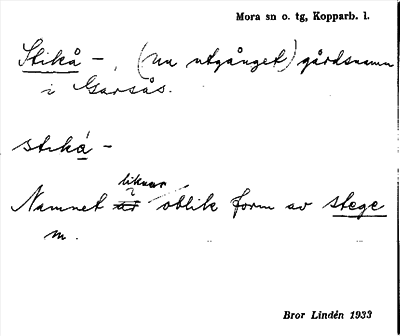 Mora sn o. tg, Kopparb. l.
Stikå – , (nu utgånget) gårdsnamn
i Garsås.
stiká̱ –
liknar
Namnet är oblik form av stege
m.
Bror Lindén 1933